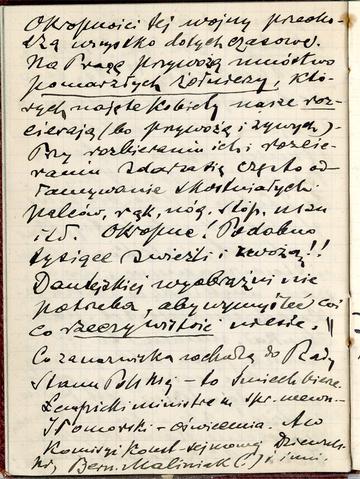 Okropności tej wojny przecho-
dzą wszystko dotychczasowe.
Na Pragę przywożą mnóstwo
pomarzłych żołnierzy, któ-
rych najęte kobiety nasze roz-
cierają (bo przywożą i żywych).
Przy rozbieraniu ich i rozcie-
raniu zdarza się często od-
łamywanie skostniałych
palców, rąk, nóg, stóp, uszu
itd. Okropne! Podobno
tysiące zwieźli i zwożą!!
Dantejskiej wyobraźni nie
potrzeba, aby wymyśleć coś
co rzeczywistość niesie.
Co za nazwiska wchodzą do Rady
Stanu Polskiej - to śmiech bierze.
Łempicki ministrem spr. wewn.
Pomorski - oświecenia. A w
Komisyi Konst.-sejmowej
Bern. Maliniak (!) i inni.